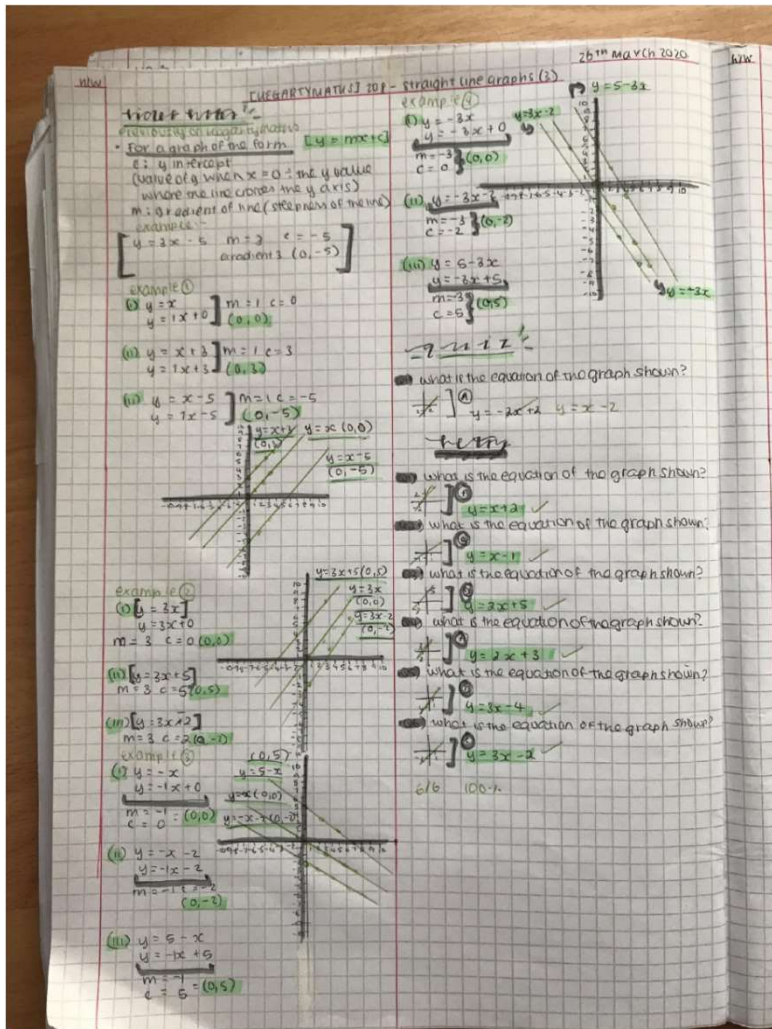 26th March 2020
H/W
H/W
[HEGARTYMATHS] 208 - straight line graphs (3)
Previously on hegartymaths
• For a graph of the form [y = mx+c]
c: y intercept
(value of y when x = 0 ÷ the y value
where the line crosses the y axis)
m: gradient of line (steepness of the line)
example:-
y = 3x - 5 m = 3 c = -5
gradient 3 (0, -5)
example ①
(i) y = x
y = 1x + 0 ] m = 1 c = 0
(0, 0)
(ii) y = x + 3 ] m = 1 c = 3
y = 1x + 3 (0, 3)
y = x - 5 ] m = 1 c = -5
y = 1x - 5 (0, -5)
y = x (0,0)
y = x - 5
(0, -5)
example ②
(i) [y = 3x]
y = 3x+0
m = 3 c = 0 (0,0)
(ii) [y = 3x+5]
m = 3 c = 5 (0,5)
(iii) [y = 3x-2]
m = 3 c = 2 (0, -2)
y = 3x+5 (0,5)
y = 3x
(0,0)
y = 3x-2
(0, -2)
example ③
(i) y = -x
y = -1x + 0
m = -1
c = 0 = (0,0)
(ii) y = -x - 2
y = -1x - 2
m = -1 c = -2
(0, -2)
(iii) y = 5 - x
y = -1x + 5
m = -1
c = 5 = (0,5)
(0,5)
y = 5 - x
example ④
(i) y = -3x
y = -3x + 0
m = -3
c = 0 } (0,0)
(ii) y = -3x - 2
m = -3
c = -2 } (0, -2)
(iii) y = 5 - 3x
y = -3x + 5
m = -3
c = 5 } (0,5)
y = 5 - 3x
y = -3x
quiz:-
what is the equation of the graph shown?
y = -2x + 2 y = x - 2
what is the equation of the graph shown?
y = x + 2 ✓
what is the equation of the graph shown?
y = x - 1 ✓
what is the equation of the graph shown?
y = 2x + 5 ✓
what is the equation of the graph shown?
y = 2x + 3 ✓
what is the equation of the graph shown?
y = 3x - 4 ✓
what is the equation of the graph shown?
y = 3x - 2 ✓
6/6 100%